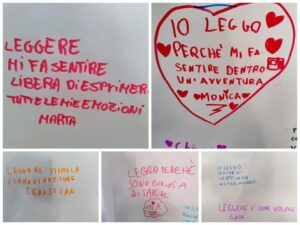 LEGGERE
MI FA SENTIRE
LIBERA DI ESPRIMER
TUTTE LE MIE EMOZIONI
MARTA
IO LEGGO
PERCHÈ MI FA
SENTIRE DENTRO
UN'AVVENTURA
MONICA
LEGGERE STIMOLA
L'IMMAGINAZIONE
SEBASTIAN
LEGGO PERCHÈ
SONO CURIOSA
DI SAPERE
IO LEGGO
PERCHÈ MI
LEGGERE È COME VOLARE
GAIA